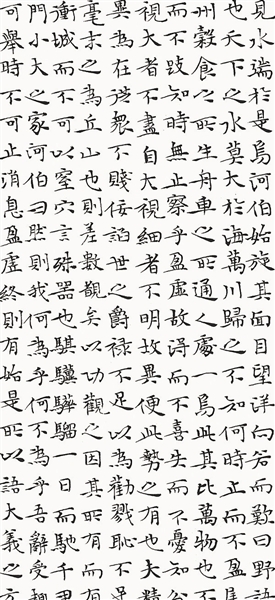 見水端於是焉河伯始旋其面目望洋向若而歎曰野
也天下之水莫大於海萬川歸之不知何時止而不
州穀食之所生舟車之所通人處一焉此其比萬物也
而不跂知時無止察乎盈虛故得而不喜失而不憂
視大者不盡自大視細者不明故異便此勢之有也夫精
異為在從眾不賤佞諂世之爵祿不足以為勸戮恥不
毫末之為丘山也則差數觀矣以功觀之因其所有而
衝城而不可以窒穴言殊器也騏驥驊騮一日而馳千
門小大之家河伯曰然則我何為乎何不為乎吾辭受
可舉時不可止消息盈虛終則有始是所以語大義之